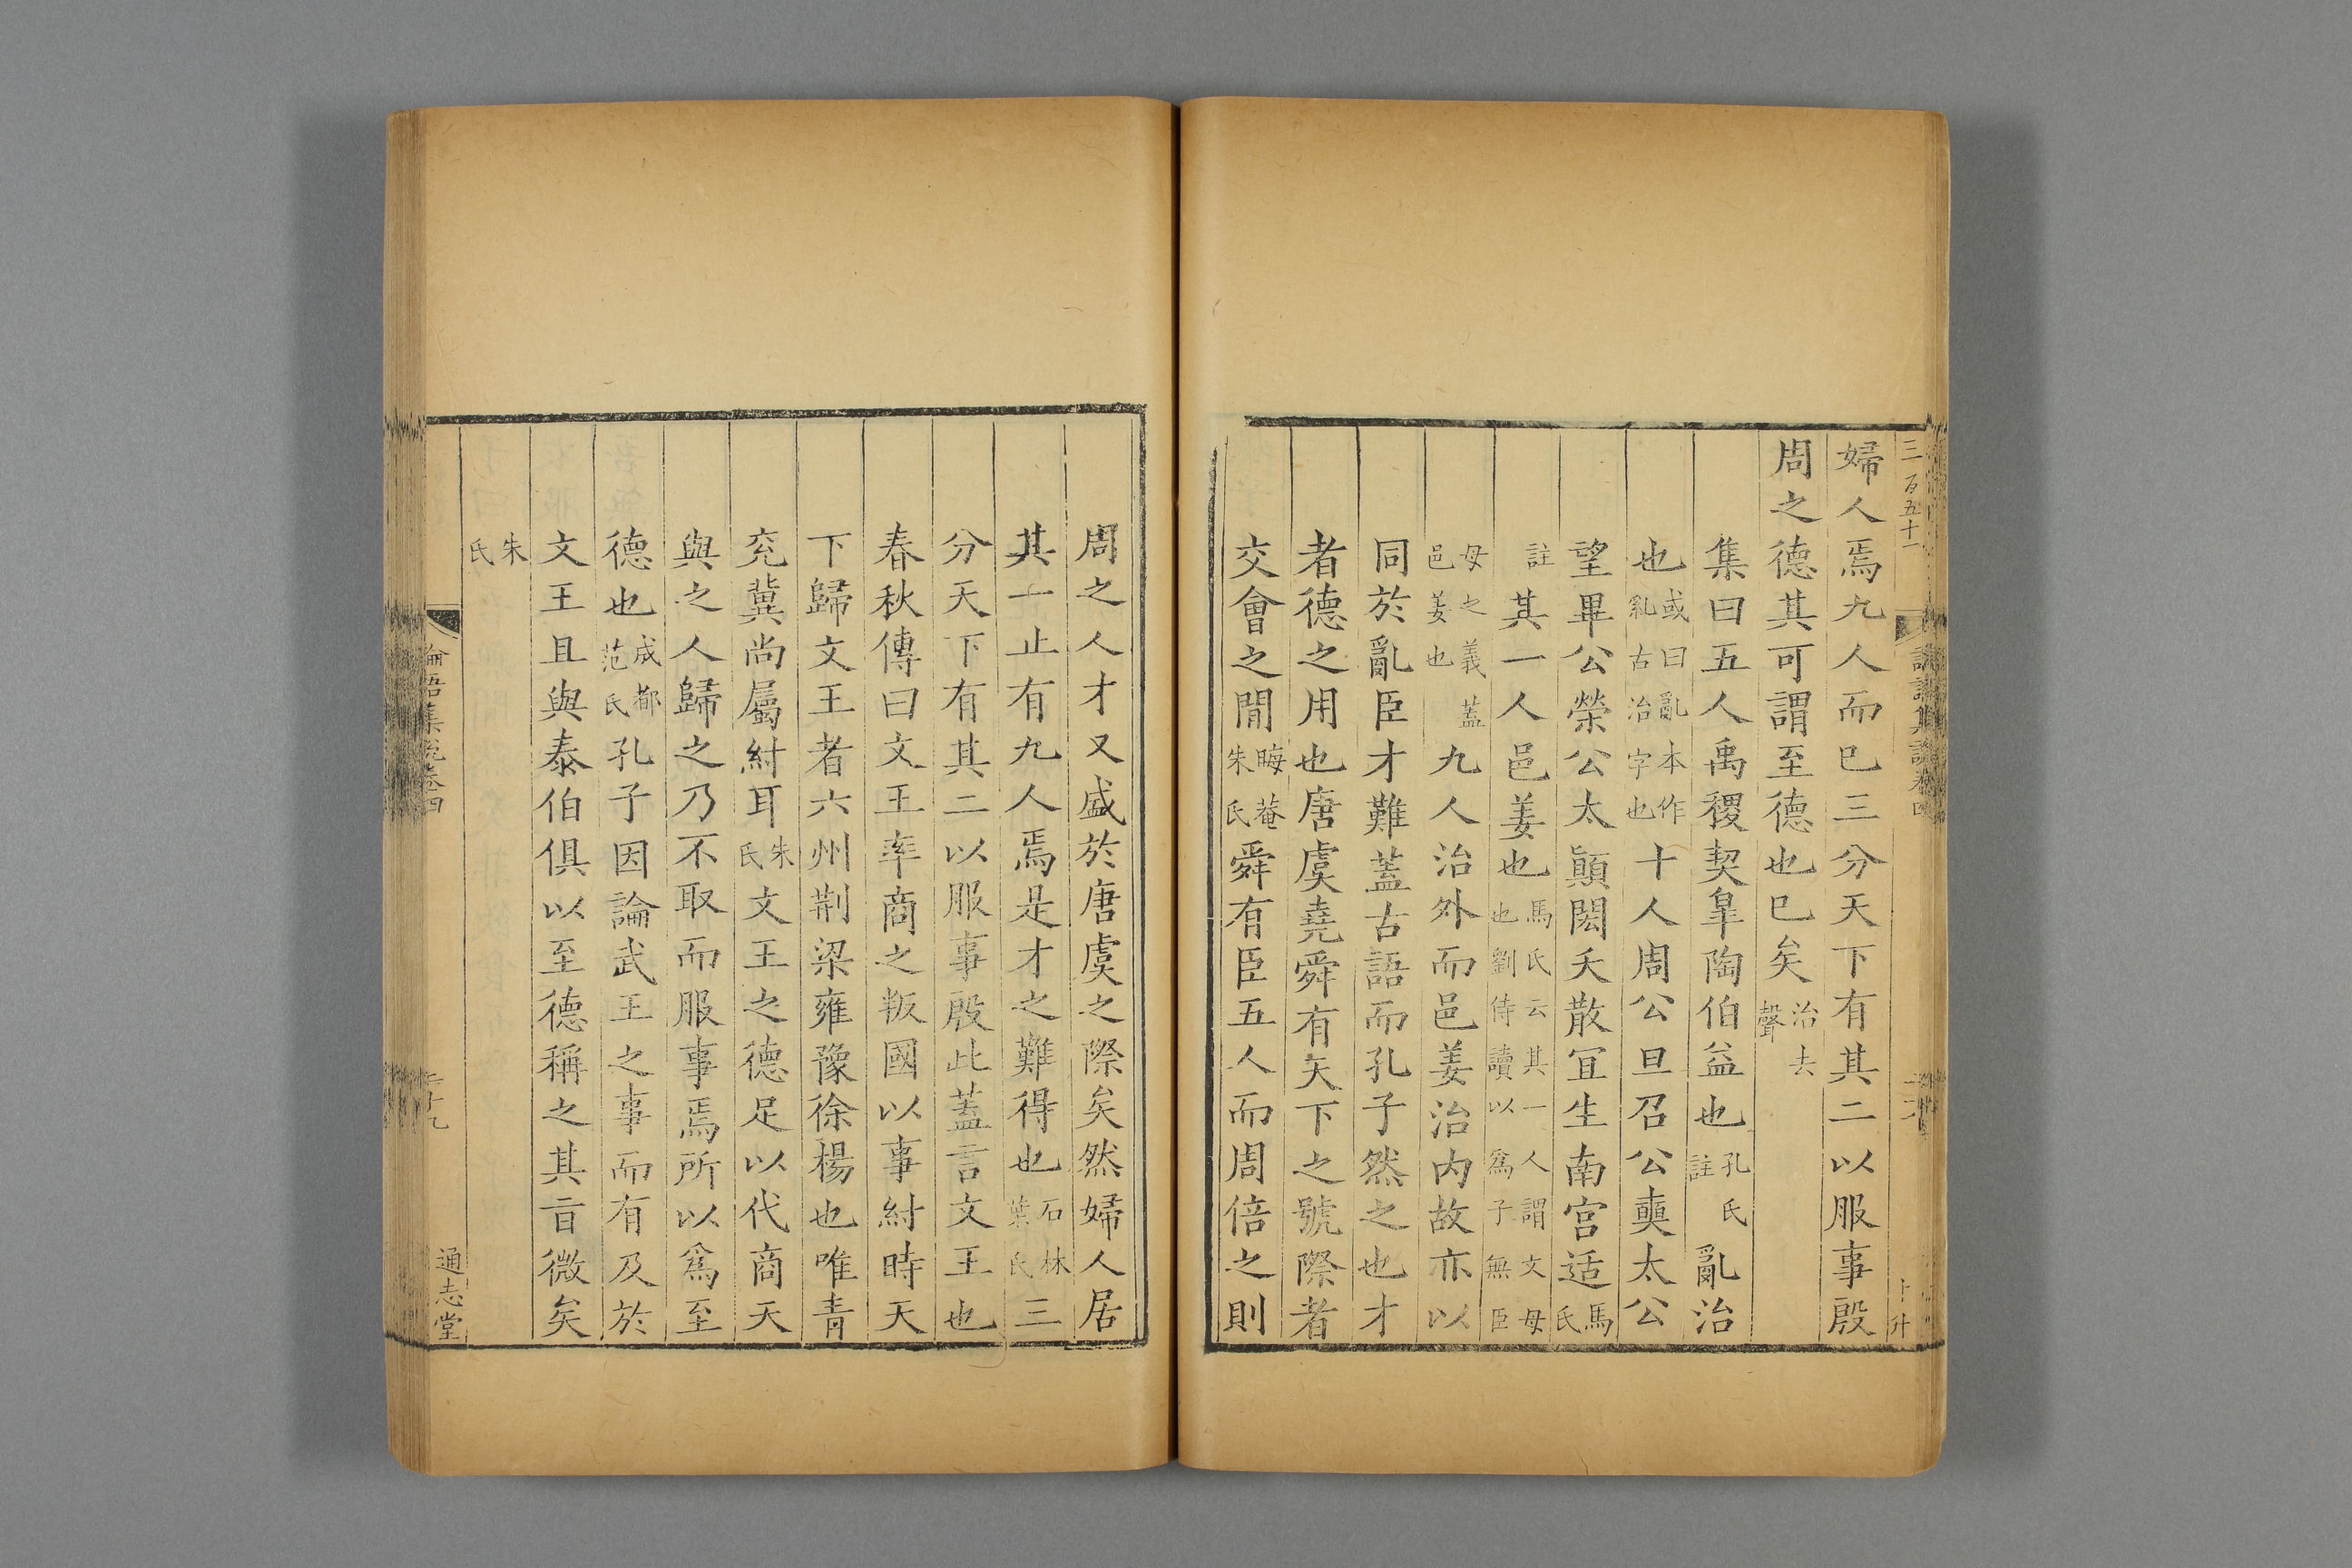 三百五十一
婦人焉九人而已三分天下有其二以服事殷
周之德其可謂至德也已矣治去聲
集曰五人禹稷契臯陶伯益也孔氏註亂治
也或曰亂本作乿古治字也十人周公旦召公奭太公
望畢公榮公太顚閎夭散宜生南宫适馬氏
註其一人邑姜也馬氏云其一人謂文母也劉侍讀以爲子無臣
母之義蓋邑姜也九人治外而邑姜治内故亦以
同於亂臣才難蓋古語而孔子然之也才
者德之用也唐虞堯舜有天下之號際者
交會之閒晦菴朱氏舜有臣五人而周倍之則
周之人才又盛於唐虞之際矣然婦人居
其一止有九人焉是才之難得也石林葉氏三
分天下有其二以服事殷此蓋言文王也
春秋傳曰文王率商之叛國以事紂時天
下歸文王者六州荆梁雍豫徐楊也唯青
兖冀尚屬紂耳朱氏文王之德足以代商天
與之人歸之乃不取而服事焉所以爲至
德也成都范氏孔子因論武王之事而有及於
文王且與泰伯俱以至德稱之其旨微矣
朱氏
論語集說卷四
二十九
通志堂